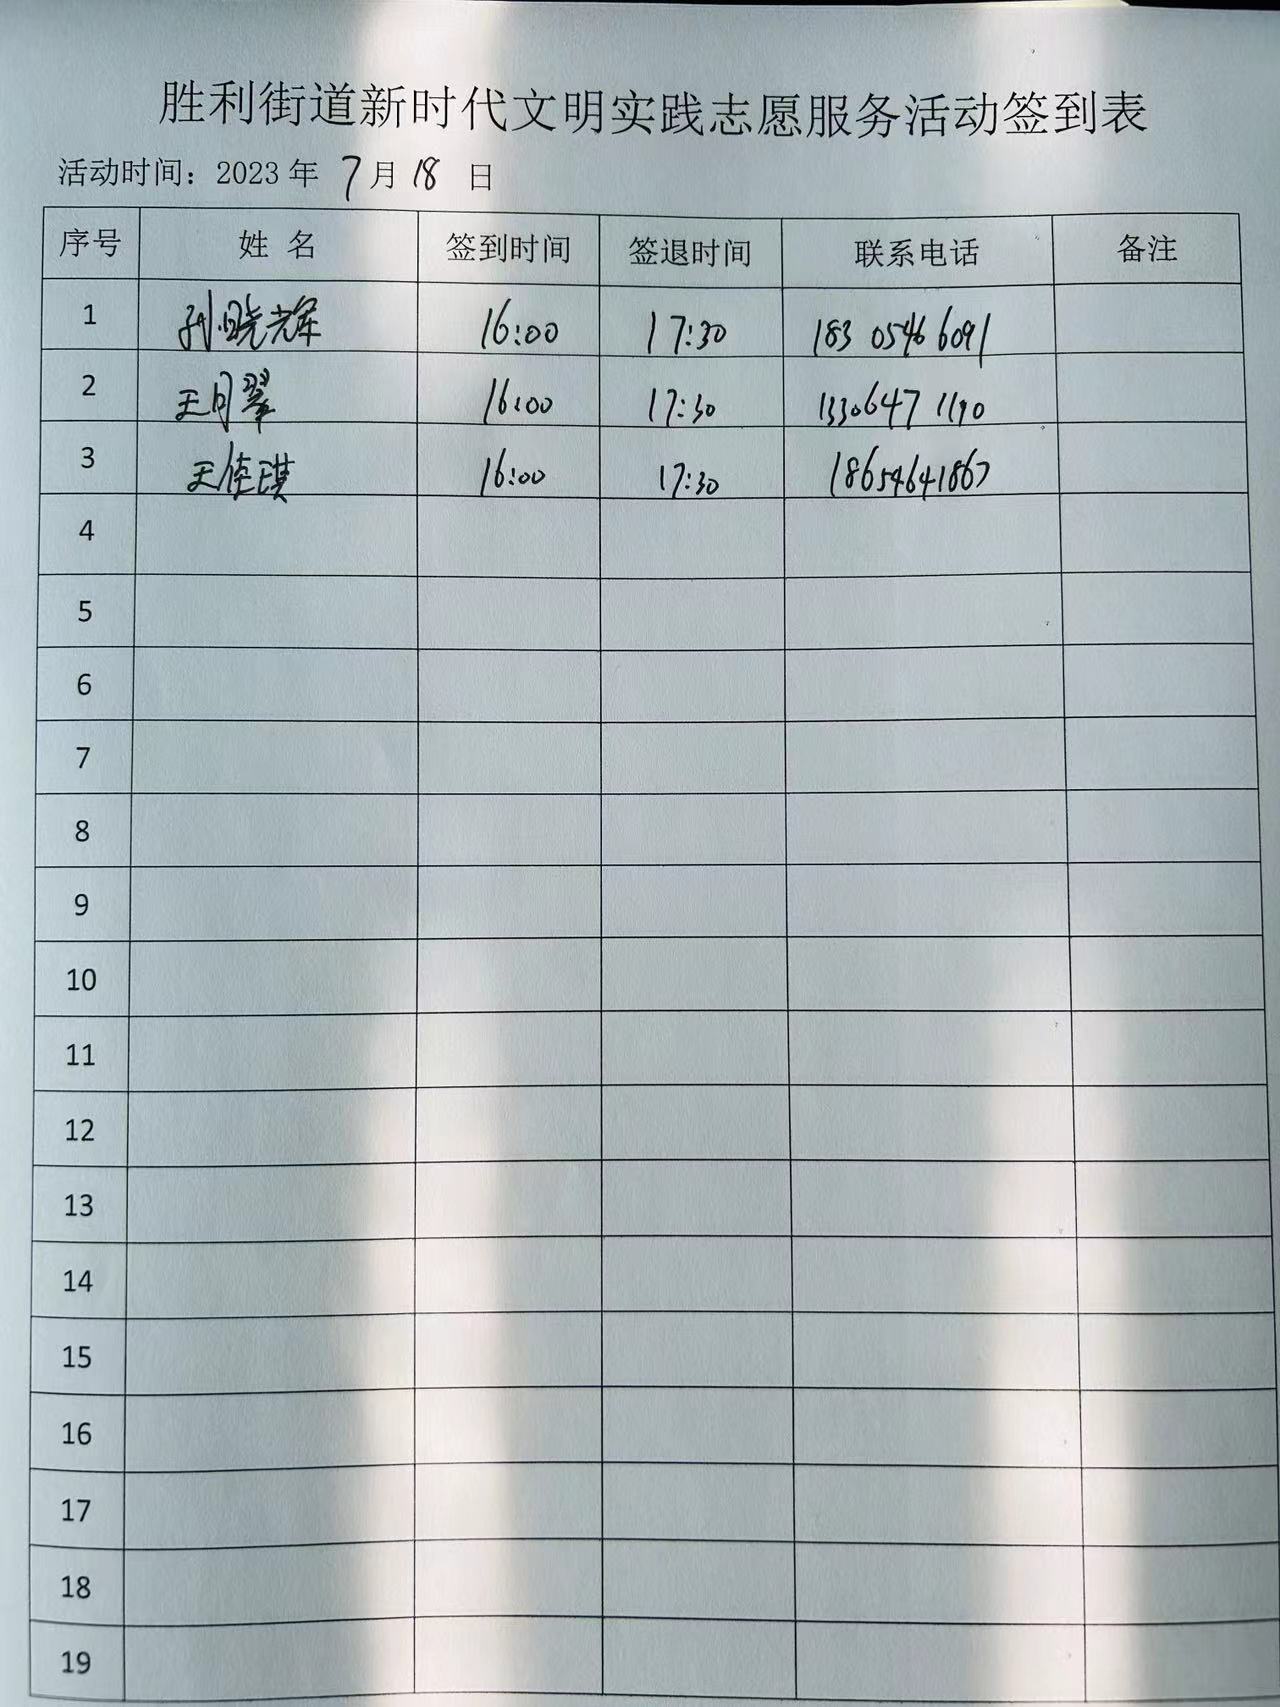 胜利街道新时代文明实践志愿服务活动签到表
活动时间：2023 年 7 月 18 日
序号 姓 名 签到时间 签退时间 联系电话 备注
1 孙晓辉 16:00 17:30 183 0546 6091
2 王月翠 16:00 17:30 1330647 1190
3 王佳琪 16:00 17:30 18654641867
4
5
6
7
8
9
10
11
12
13
14
15
16
17
18
19